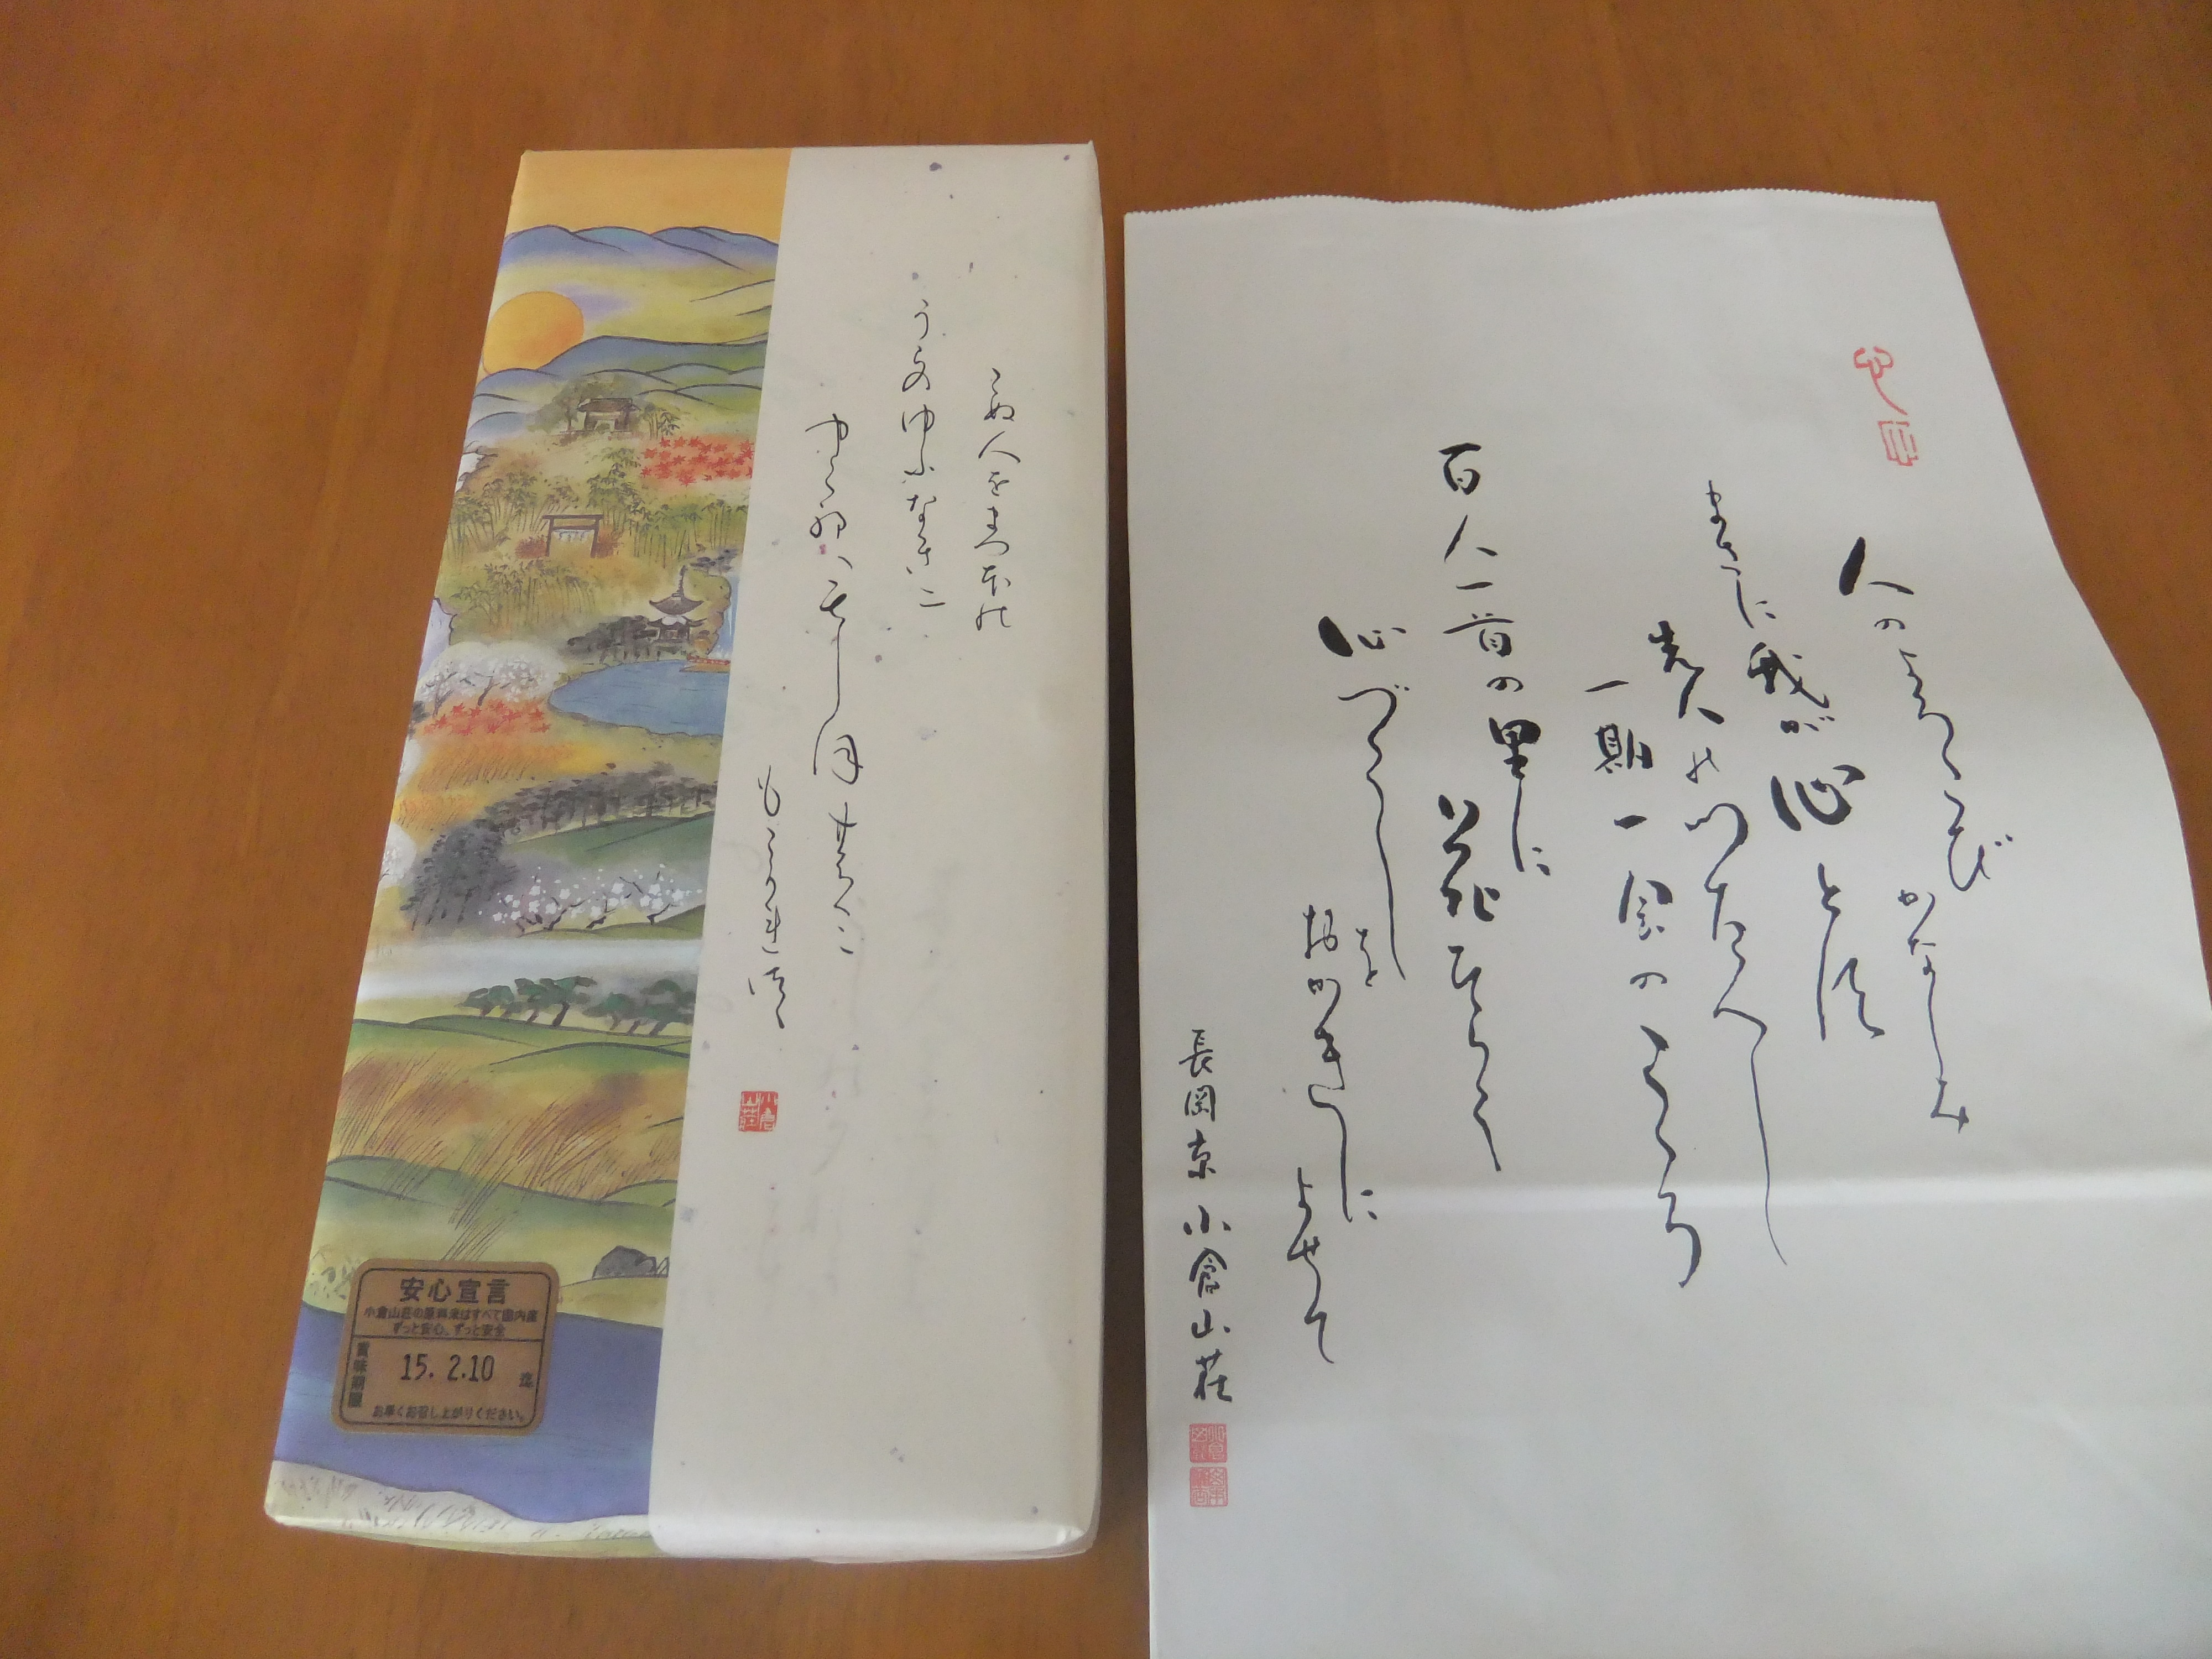 こぬ人をまつほの
うらのゆふなきに
もこかれつゝ
安心宣言
小倉山荘の原料米はすべて国内産
ずっと安心、ずっと安全
賞味期限
15. 2.10
迄
お早くお召し上がりください。
人のよろこび
かなしみ
まさに我が心と
先人のつたへし
一期一会のこころ
百人一首の里に
心づくしを
おかきに
よせて
長岡京 小倉山荘